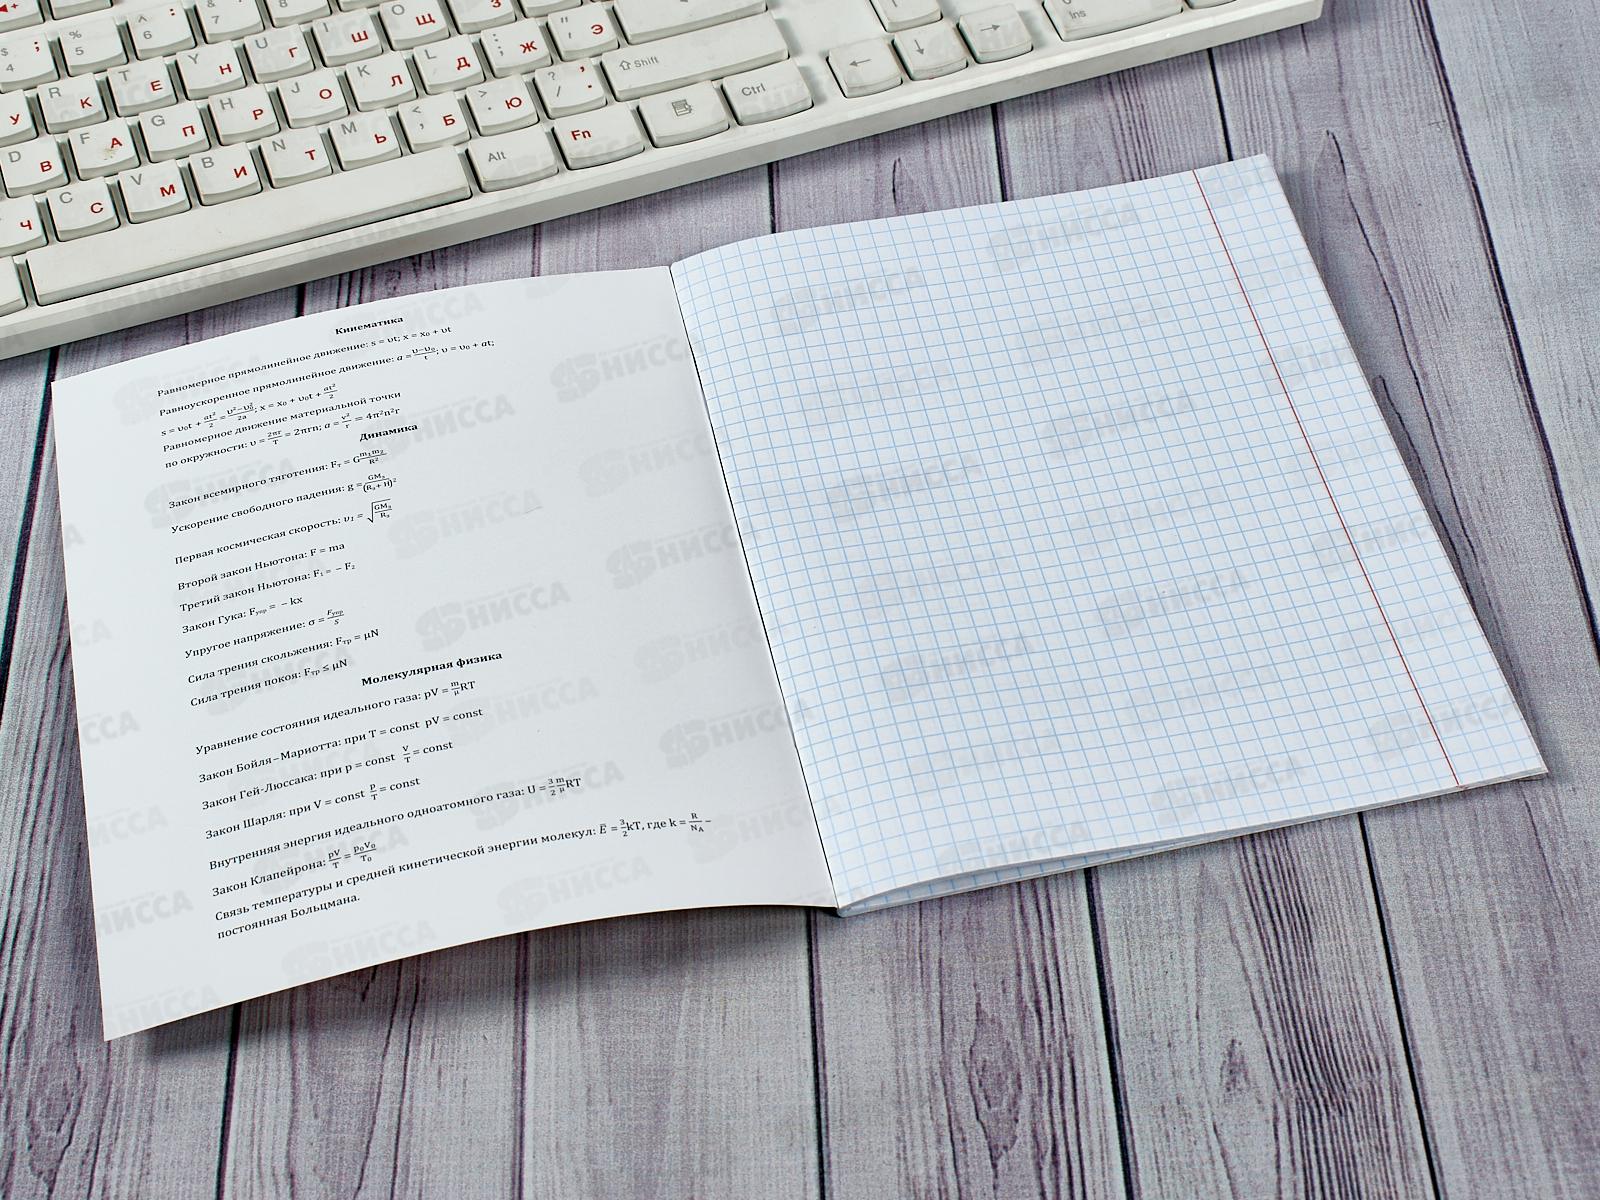 Кинематика
Равномерное прямолинейное движение: s = υt; x = x₀ + υt
Равноускоренное прямолинейное движение: a = (υ−υ₀)/t; υ = υ₀ + at;
s = υ₀t + at²/2 = (υ²−υ₀²)/2a; x = x₀ + υ₀t + at²/2
Равномерное движение материальной точки
по окружности: υ = 2πr/T = 2πrn; a = v²/r = 4π²n²r
Динамика
Закон всемирного тяготения: Fт = G m₁m₂/R²
Ускорение свободного падения: g = GMз/(Rз+H)²
Первая космическая скорость: υ₁ = √(GMз/Rз)
Второй закон Ньютона: F = ma
Третий закон Ньютона: F₁ = − F₂
Закон Гука: Fупр = − kx
Упругое напряжение: σ = Fупр/S
Сила трения скольжения: Fтр = μN
Сила трения покоя: Fтр ≤ μN
Молекулярная физика
Уравнение состояния идеального газа: pV = m/μ RT
Закон Бойля–Мариотта: при T = const pV = const
Закон Гей-Люссака: при p = const V/T = const
Закон Шарля: при V = const p/T = const
Внутренняя энергия идеального одноатомного газа: U = 3/2 m/μ RT
Закон Клапейрона: pV/T = p₀V₀/T₀
Связь температуры и средней кинетической энергии молекул: E̅ = 3/2 kT, где k = R/Nᴀ –
постоянная Больцмана.
НИССА
Shift
Ctrl
Alt
Fn
Ins